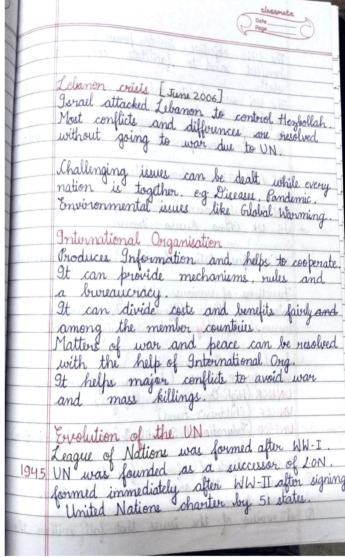 classmate
Date
Page
Lebanon crisis [June 2006]
Israel attacked Lebanon to control Hezbollah.
Most conflicts and differences are resolved
without going to war due to UN.
Challenging issues can be dealt while every
nation is together. eg Diseases, Pandemic,
Environmental issues like Global Warming.
International Organisation
Produces Information and helps to cooperate.
It can provide mechanisms, rules and
a bureaucracy.
It can divide costs and benefits fairly and
among the member countries.
Matters of war and peace can be resolved
with the help of International Org.
It helps major conflicts to avoid war
and mass killings.
Evolution of the UN
League of Nations was formed after WW-I.
1945 UN was founded as a successor of LON.
formed immediately after WW-II after signing
United Nations charter by 51 states.